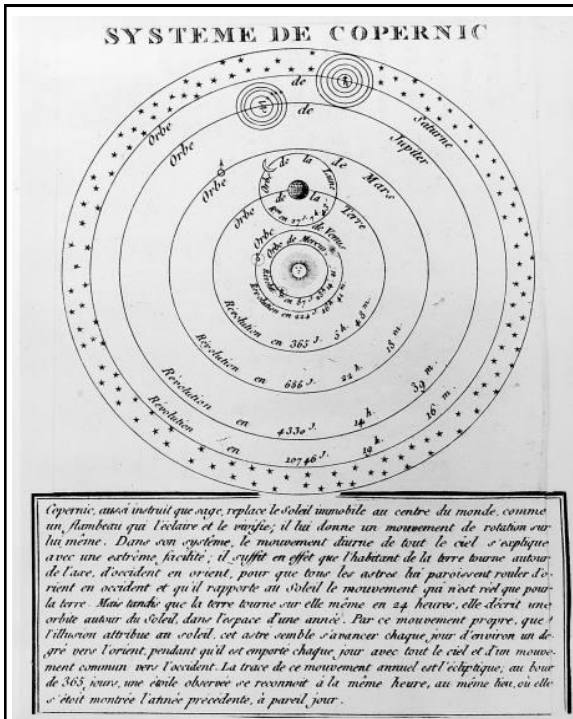 SYSTEME DE COPERNIC
Orbe de Saturne
Orbe de Jupiter
Orbe de Mars
Orbe de la Lune
Orbe de la Terre
Orbe de Venus
Orbe de Mercure
Révolution en 224 J. 16 h. 41 m.
Révolution en 365 J. 5 h. 48 m.
Révolution en 686 J. 22 h. 18 m.
Révolution en 4330 J. 14 h. 39 m.
Revolution en 10746 J. 19 h. 16 m.
Copernic, aussi instruit que sage, replace le Soleil immobile au centre du monde, comme
un flambeau qui l'éclaire et le vivifie; il lui donne un mouvement de rotation sur
lui même. Dans son systême, le mouvement diurne de tout le ciel s'explique
avec une extrême facilité; il suffit en effet que l'habitant de la terre tourne autour
de l'axe, d'occident en orient, pour que tous les astres lui paroissent rouler d'o-
rient en occident et qu'il rapporte au Soleil le mouvement qui n'est réel que pour
la terre. Mais tandis que la terre tourne sur elle même en 24 heures, elle décrit une
orbite autour du Soleil, dans l'espace d'une année. Par ce mouvement propre, que
l'illusion attribue au soleil, cet astre semble s'avancer chaque jour d'environ un de-
gré vers l'orient, pendant qu'il est emporté chaque jour avec tout le ciel et d'un mouve-
ment commun vers l'occident. La trace de ce mouvement annuel est l'écliptique; au bour
de 365 jours, une étoile observée se reconnoit à la même heure, au même lieu, où elle
s'étoit montrée l'année précédente, à pareil jour.